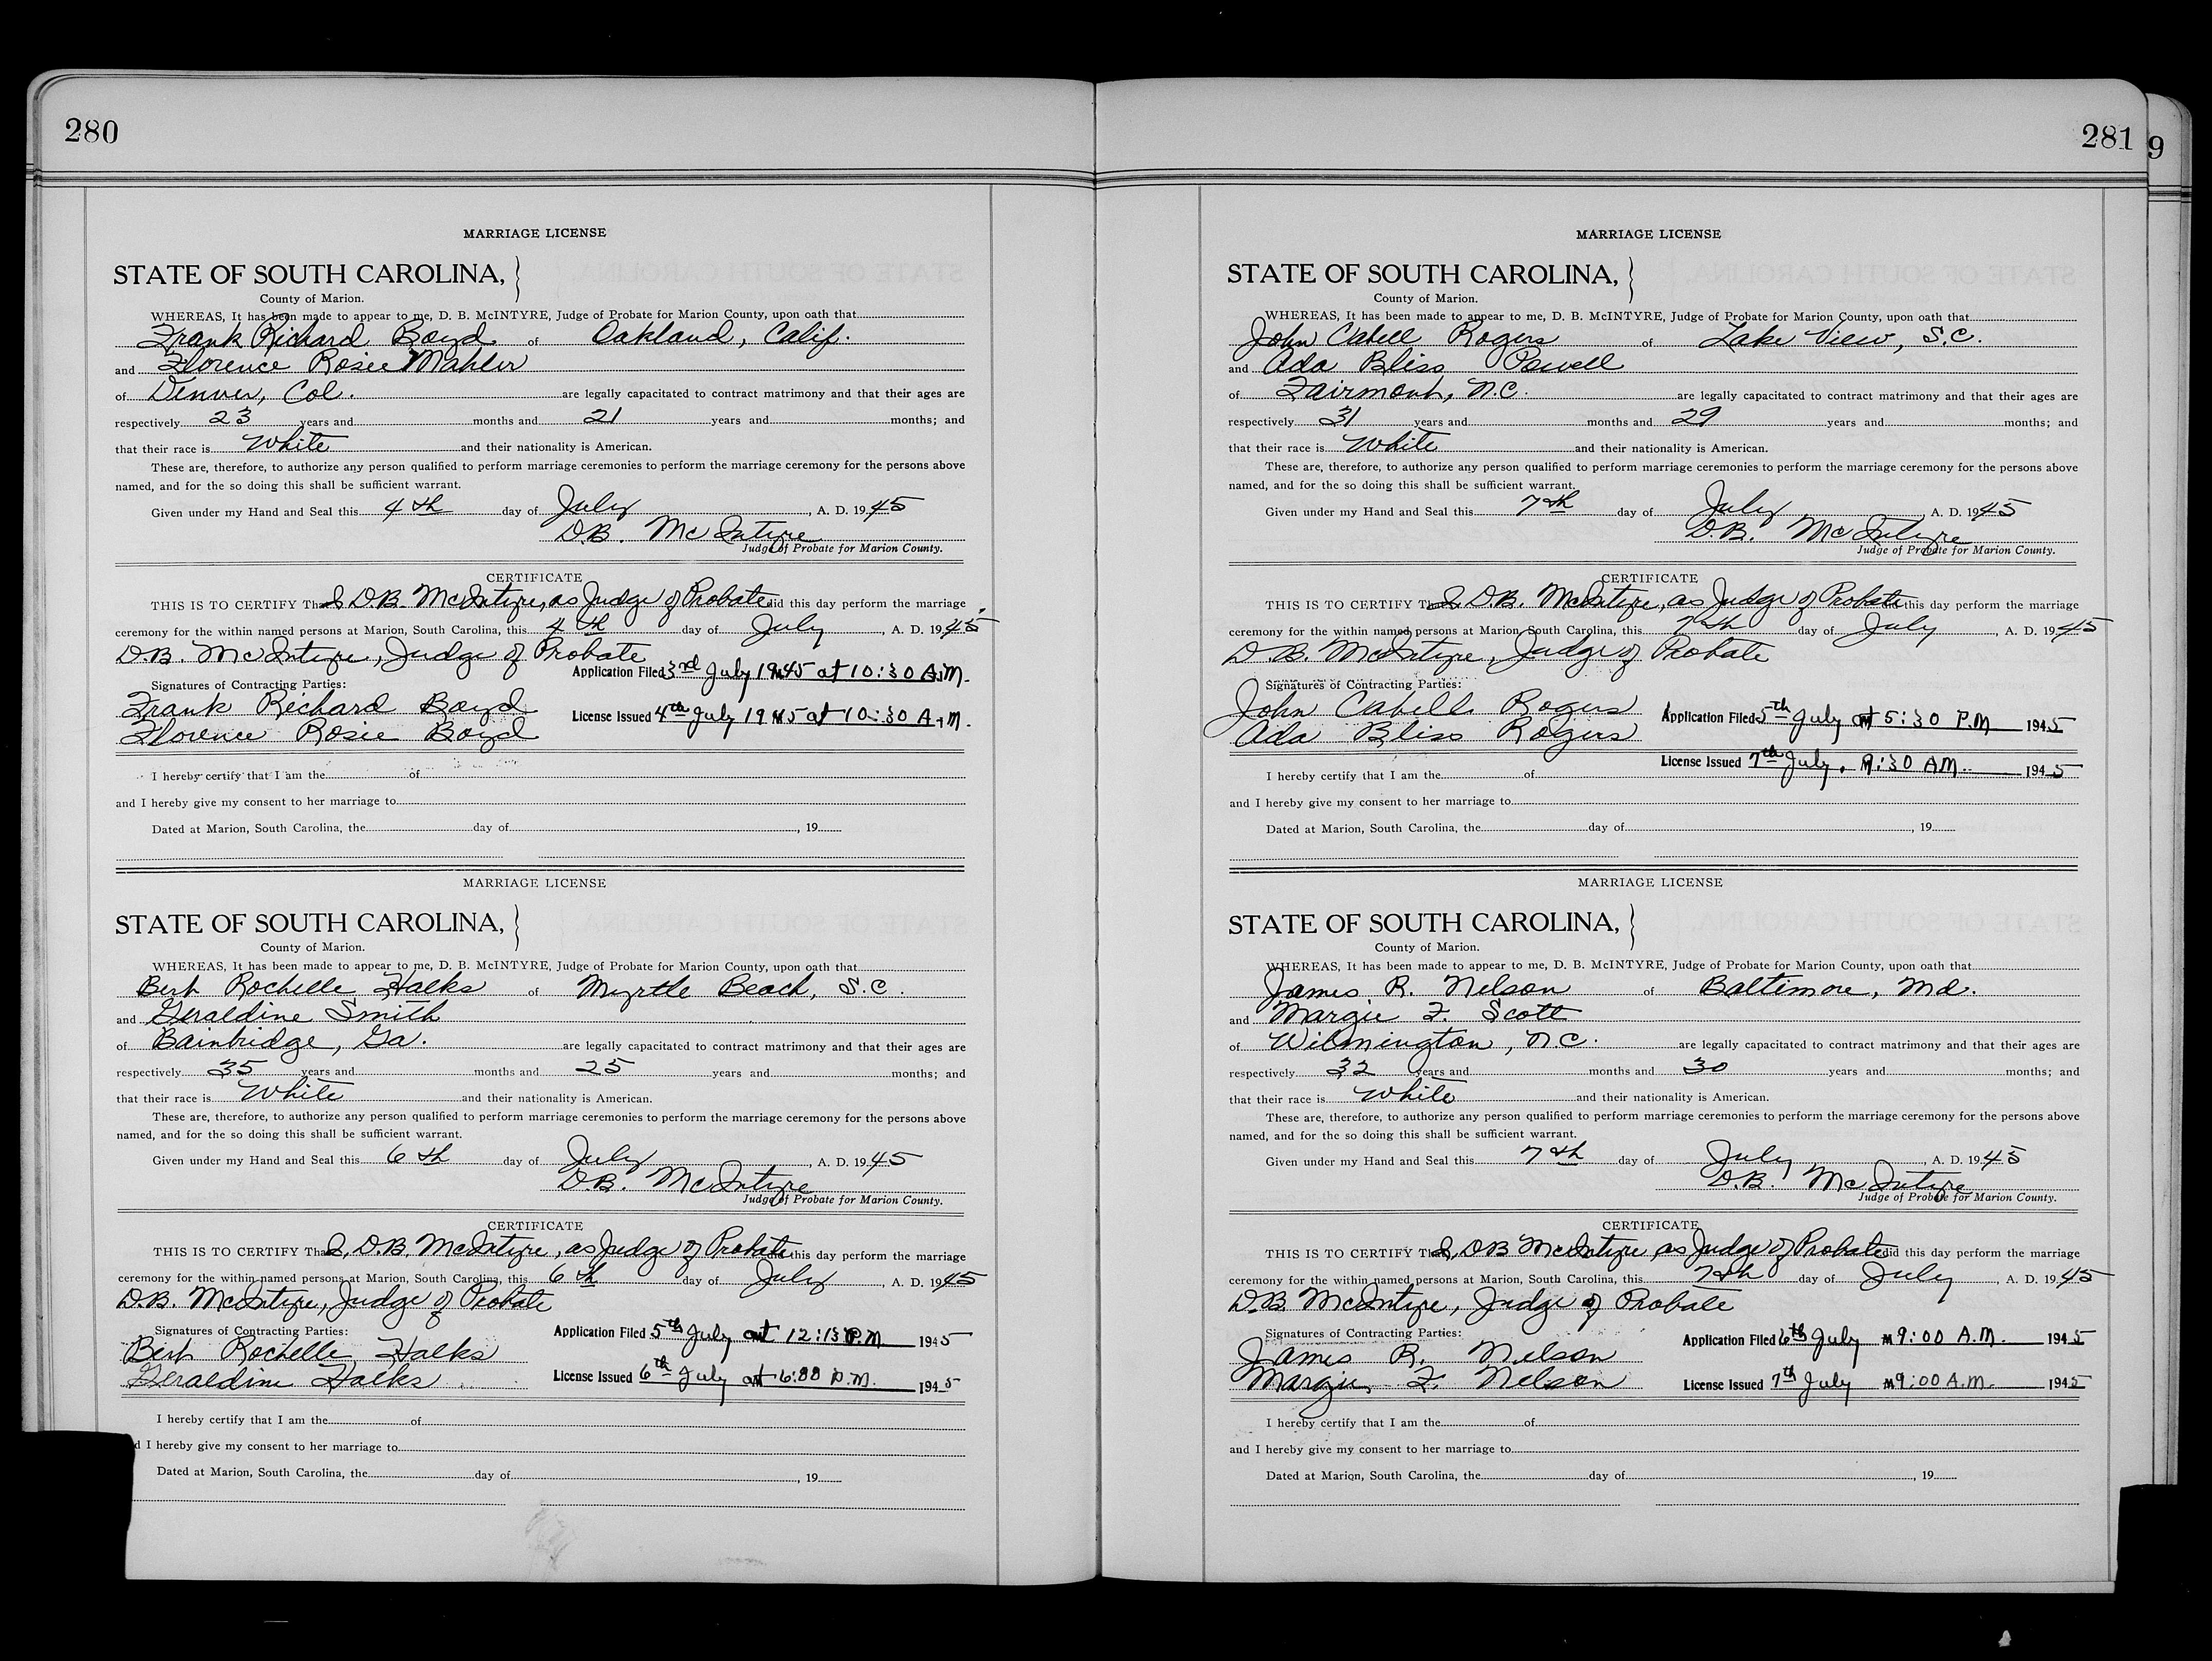 280
MARRIAGE LICENSE
STATE OF SOUTH CAROLINA,
County of Marion.
WHEREAS, It has been made to appear to me, D. B. McINTYRE, Judge of Probate for Marion County, upon oath that
Frank Richard Boyd of Oakland, Calif.
and Florence Rosie Mahler
of Denver, Col. are legally capacitated to contract matrimony and that their ages are
respectively 23 years and months and 21 years and months; and
that their race is White and their nationality is American.
These are, therefore, to authorize any person qualified to perform marriage ceremonies to perform the marriage ceremony for the persons above
named, and for the so doing this shall be sufficient warrant.
Given under my Hand and Seal this 4th day of July, A. D. 1945
D.B. McIntyre
Judge of Probate for Marion County.
CERTIFICATE
THIS IS TO CERTIFY That I D.B. McIntyre, as Judge of Probate did this day perform the marriage
ceremony for the within named persons at Marion, South Carolina, this 4th day of July, A. D. 1945
D.B. McIntyre, Judge of Probate
Application Filed 3rd July 1945 at 10:30 A.M.
Signatures of Contracting Parties:
Frank Richard Boyd
License Issued 4th July 1945 at 10:30 A.M.
Florence Rosie Boyd
I hereby certify that I am the of
and I hereby give my consent to her marriage to
Dated at Marion, South Carolina, the day of , 19
MARRIAGE LICENSE
STATE OF SOUTH CAROLINA,
County of Marion.
WHEREAS, It has been made to appear to me, D. B. McINTYRE, Judge of Probate for Marion County, upon oath that
Bert Rochelle Halks of Myrtle Beach, S.C.
and Geraldine Smith
of Bainbridge, Ga. are legally capacitated to contract matrimony and that their ages are
respectively 35 years and months and 25 years and months; and
that their race is White and their nationality is American.
These are, therefore, to authorize any person qualified to perform marriage ceremonies to perform the marriage ceremony for the persons above
named, and for the so doing this shall be sufficient warrant.
Given under my Hand and Seal this 6th day of July, A. D. 1945
D.B. McIntyre
Judge of Probate for Marion County.
CERTIFICATE
THIS IS TO CERTIFY That I, D.B. McIntyre, as Judge of Probate this day perform the marriage
ceremony for the within named persons at Marion, South Carolina, this 6th day of July, A. D. 1945
D.B. McIntyre, Judge of Probate
Signatures of Contracting Parties:
Application Filed 5th July at P.M. 1945
Bert Rochelle Halks
License Issued 6th July at P.M. 1945
Geraldine Halks
I hereby certify that I am the of
d I hereby give my consent to her marriage to
Dated at Marion, South Carolina, the day of , 19
281
9
MARRIAGE LICENSE
STATE OF SOUTH CAROLINA,
County of Marion.
WHEREAS, It has been made to appear to me, D. B. McINTYRE, Judge of Probate for Marion County, upon oath that
John Cabell Rogers of Lake View, S.C.
and Ada Bliss Powell
of Fairmont, N.C. are legally capacitated to contract matrimony and that their ages are
respectively 31 years and months and 29 years and months; and
that their race is White and their nationality is American.
These are, therefore, to authorize any person qualified to perform marriage ceremonies to perform the marriage ceremony for the persons above
named, and for the so doing this shall be sufficient warrant.
Given under my Hand and Seal this 7th day of July, A. D. 1945
D.B. McIntyre
Judge of Probate for Marion County.
CERTIFICATE
THIS IS TO CERTIFY T I D.B. McIntyre, as Judge of Probate this day perform the marriage
ceremony for the within named persons at Marion, South Carolina, this 7th day of July, A. D. 1945
D.B. McIntyre, Judge of Probate
Signatures of Contracting Parties:
John Cabell Rogers
Application Filed 5th July at 5:30 P.M 1945
Ada Bliss Rogers
License Issued 7th July, 9:30 AM. 1945
I hereby certify that I am the of
and I hereby give my consent to her marriage to
Dated at Marion, South Carolina, the day of , 19
MARRIAGE LICENSE
STATE OF SOUTH CAROLINA,
County of Marion.
WHEREAS, It has been made to appear to me, D. B. McINTYRE, Judge of Probate for Marion County, upon oath that
James R. Nelson of Baltimore, Md.
and Margie F. Scott
of Wilmington, N.C. are legally capacitated to contract matrimony and that their ages are
respectively 32 years and months and 30 years and months; and
that their race is White and their nationality is American.
These are, therefore, to authorize any person qualified to perform marriage ceremonies to perform the marriage ceremony for the persons above
named, and for the so doing this shall be sufficient warrant.
Given under my Hand and Seal this 7th day of July, A. D. 1945
D.B. McIntyre
Judge of Probate for Marion County.
CERTIFICATE
THIS IS TO CERTIFY T I, D B McIntyre, as Judge of Probate did this day perform the marriage
ceremony for the within named persons at Marion, South Carolina, this 7th day of July, A. D. 1945
D.B. McIntyre, Judge of Probate
Signatures of Contracting Parties:
Application Filed 6th July M 9:00 A.M. 1945
James R. Nelson
License Issued 7th July M 9:00 A.M. 1945
Margie F. Nelson
I hereby certify that I am the of
and I hereby give my consent to her marriage to
Dated at Marion, South Carolina, the day of , 19